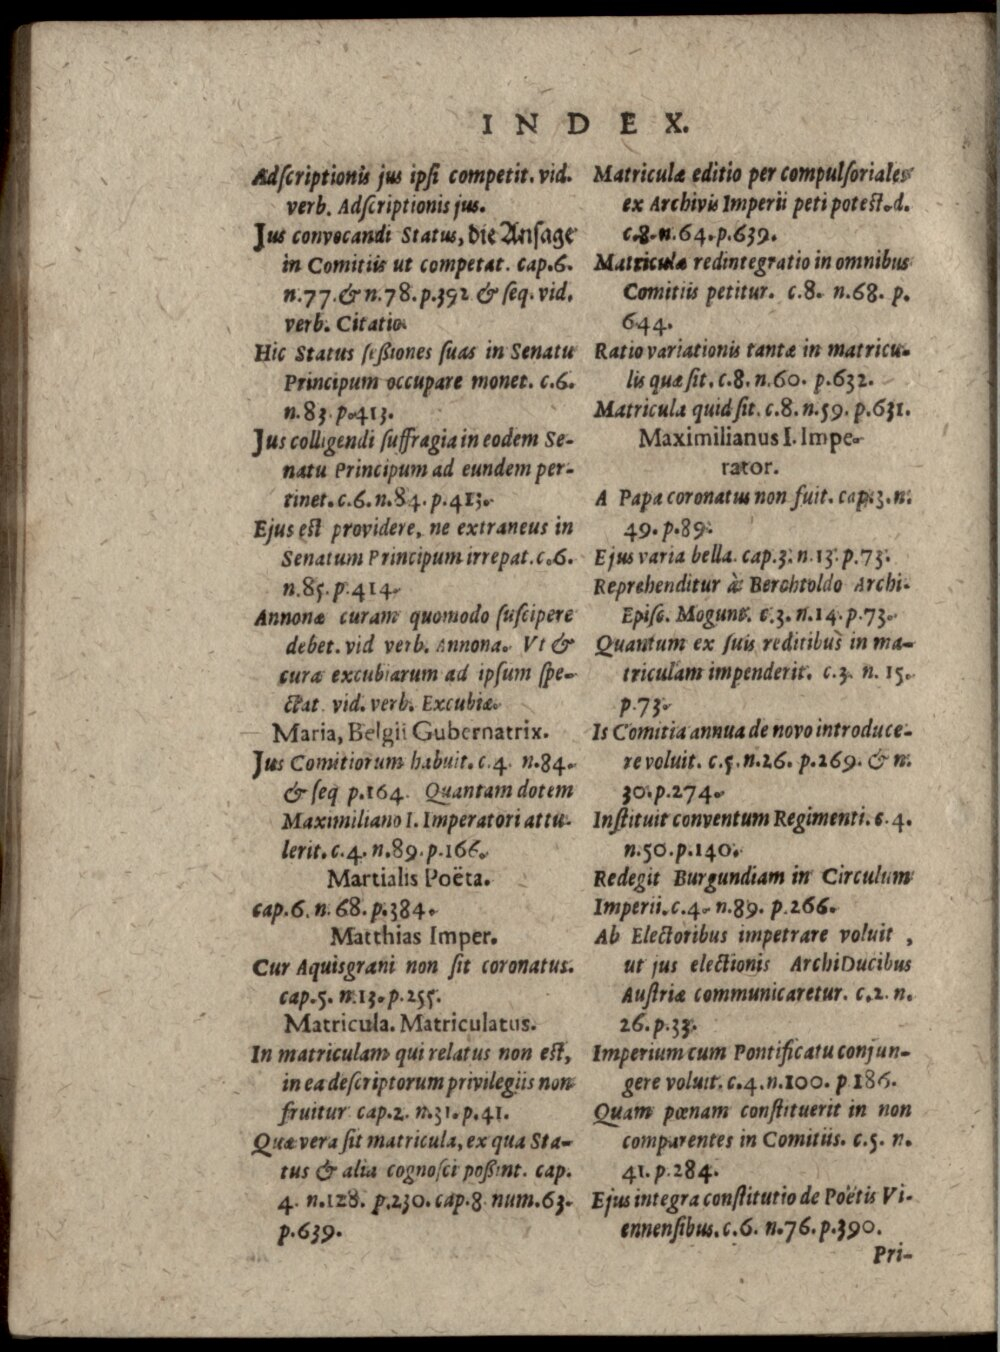 INDEX.
Adſcriptionis jus ipſi competit. vid.
verb. Adſcriptionis jus.
Jus convocandi Status, die Anſage
in Comitiis ut competat. cap.6.
n.77. & n.78. p.392 & ſeq. vid.
verb. Citatio.
Hic Status ſeßiones ſuas in Senatu
Principum occupare monet. c.6.
n.83. p.413.
Jus colligendi ſuffragia in eodem Se-
natu Principum ad eundem per-
tinet. c.6. n.84. p.413.
Ejus eſt providere, ne extraneus in
Senatum Principum irrepat. c.6.
n.85. p.414.
Annonæ curam quomodo ſuſcipere
debet. vid verb. Annona. Vt &
curæ excubiarum ad ipſum ſpe-
ctat vid. verb. Excubiæ.
Maria, Belgii Gubernatrix.
Jus Comitiorum habuit. c.4. n.84.
& ſeq p.164. Quantam dotem
Maximiliano I. Imperatori attu-
lerit. c.4. n.89. p.166.
Martialis Poëta.
cap.6. n.68. p.384.
Matthias Imper.
Cur Aquisgrani non ſit coronatus.
cap.5. n.13. p.255.
Matricula. Matriculatus.
In matriculam qui relatus non eſt,
in ea deſcriptorum privilegiis non
fruitur cap.2. n.31. p.41.
Quæ vera ſit matricula, ex qua Sta-
tus & alia cognoſci poßint. cap.
4. n.128. p.230. cap.8 num.63.
p.639.
Matriculæ editio per compulſoriales
ex Archivis Imperii peti poteſt. d.
c.8. n.64. p.639.
Matriculæ redintegratio in omnibus
Comitiis petitur. c.8. n.68. p.
644.
Ratio variationis tantæ in matricu-
lis quæ ſit. c.8. n.60. p.632.
Matricula quid ſit. c.8. n.59. p.631.
Maximilianus I. Impe-
rator.
A Papa coronatus non fuit. cap.3. n.
49. p.89.
Ejus varia bella. cap.3. n.13. p.73.
Reprehenditur à Berchtoldo Archi-
Epiſc. Mogunt. c.3. n.14. p.73.
Quantum ex ſuis reditibus in ma-
triculam impenderit. c.3. n. 15.
p.73.
Is Comitia annua de novo introduce-
re voluit. c.5. n.26. p.269. & n.
30. p.274.
Inſtituit conventum Regimenti. c.4.
n.50. p.140.
Redegit Burgundiam in Circulum
Imperii. c.4. n.89. p.266.
Ab Electoribus impetrare voluit ,
ut jus electionis ArchiDucibus
Auſtriæ communicaretur. c.2. n.
26. p.33.
Imperium cum Pontificatu conjun-
gere voluit. c.4. n.100. p 186.
Quam pœnam conſtituerit in non
comparentes in Comitiis. c.5. n.
41. p.284.
Ejus integra conſtitutio de Poëtis Vi-
ennenſibus. c.6. n.76. p.390.
Pri-